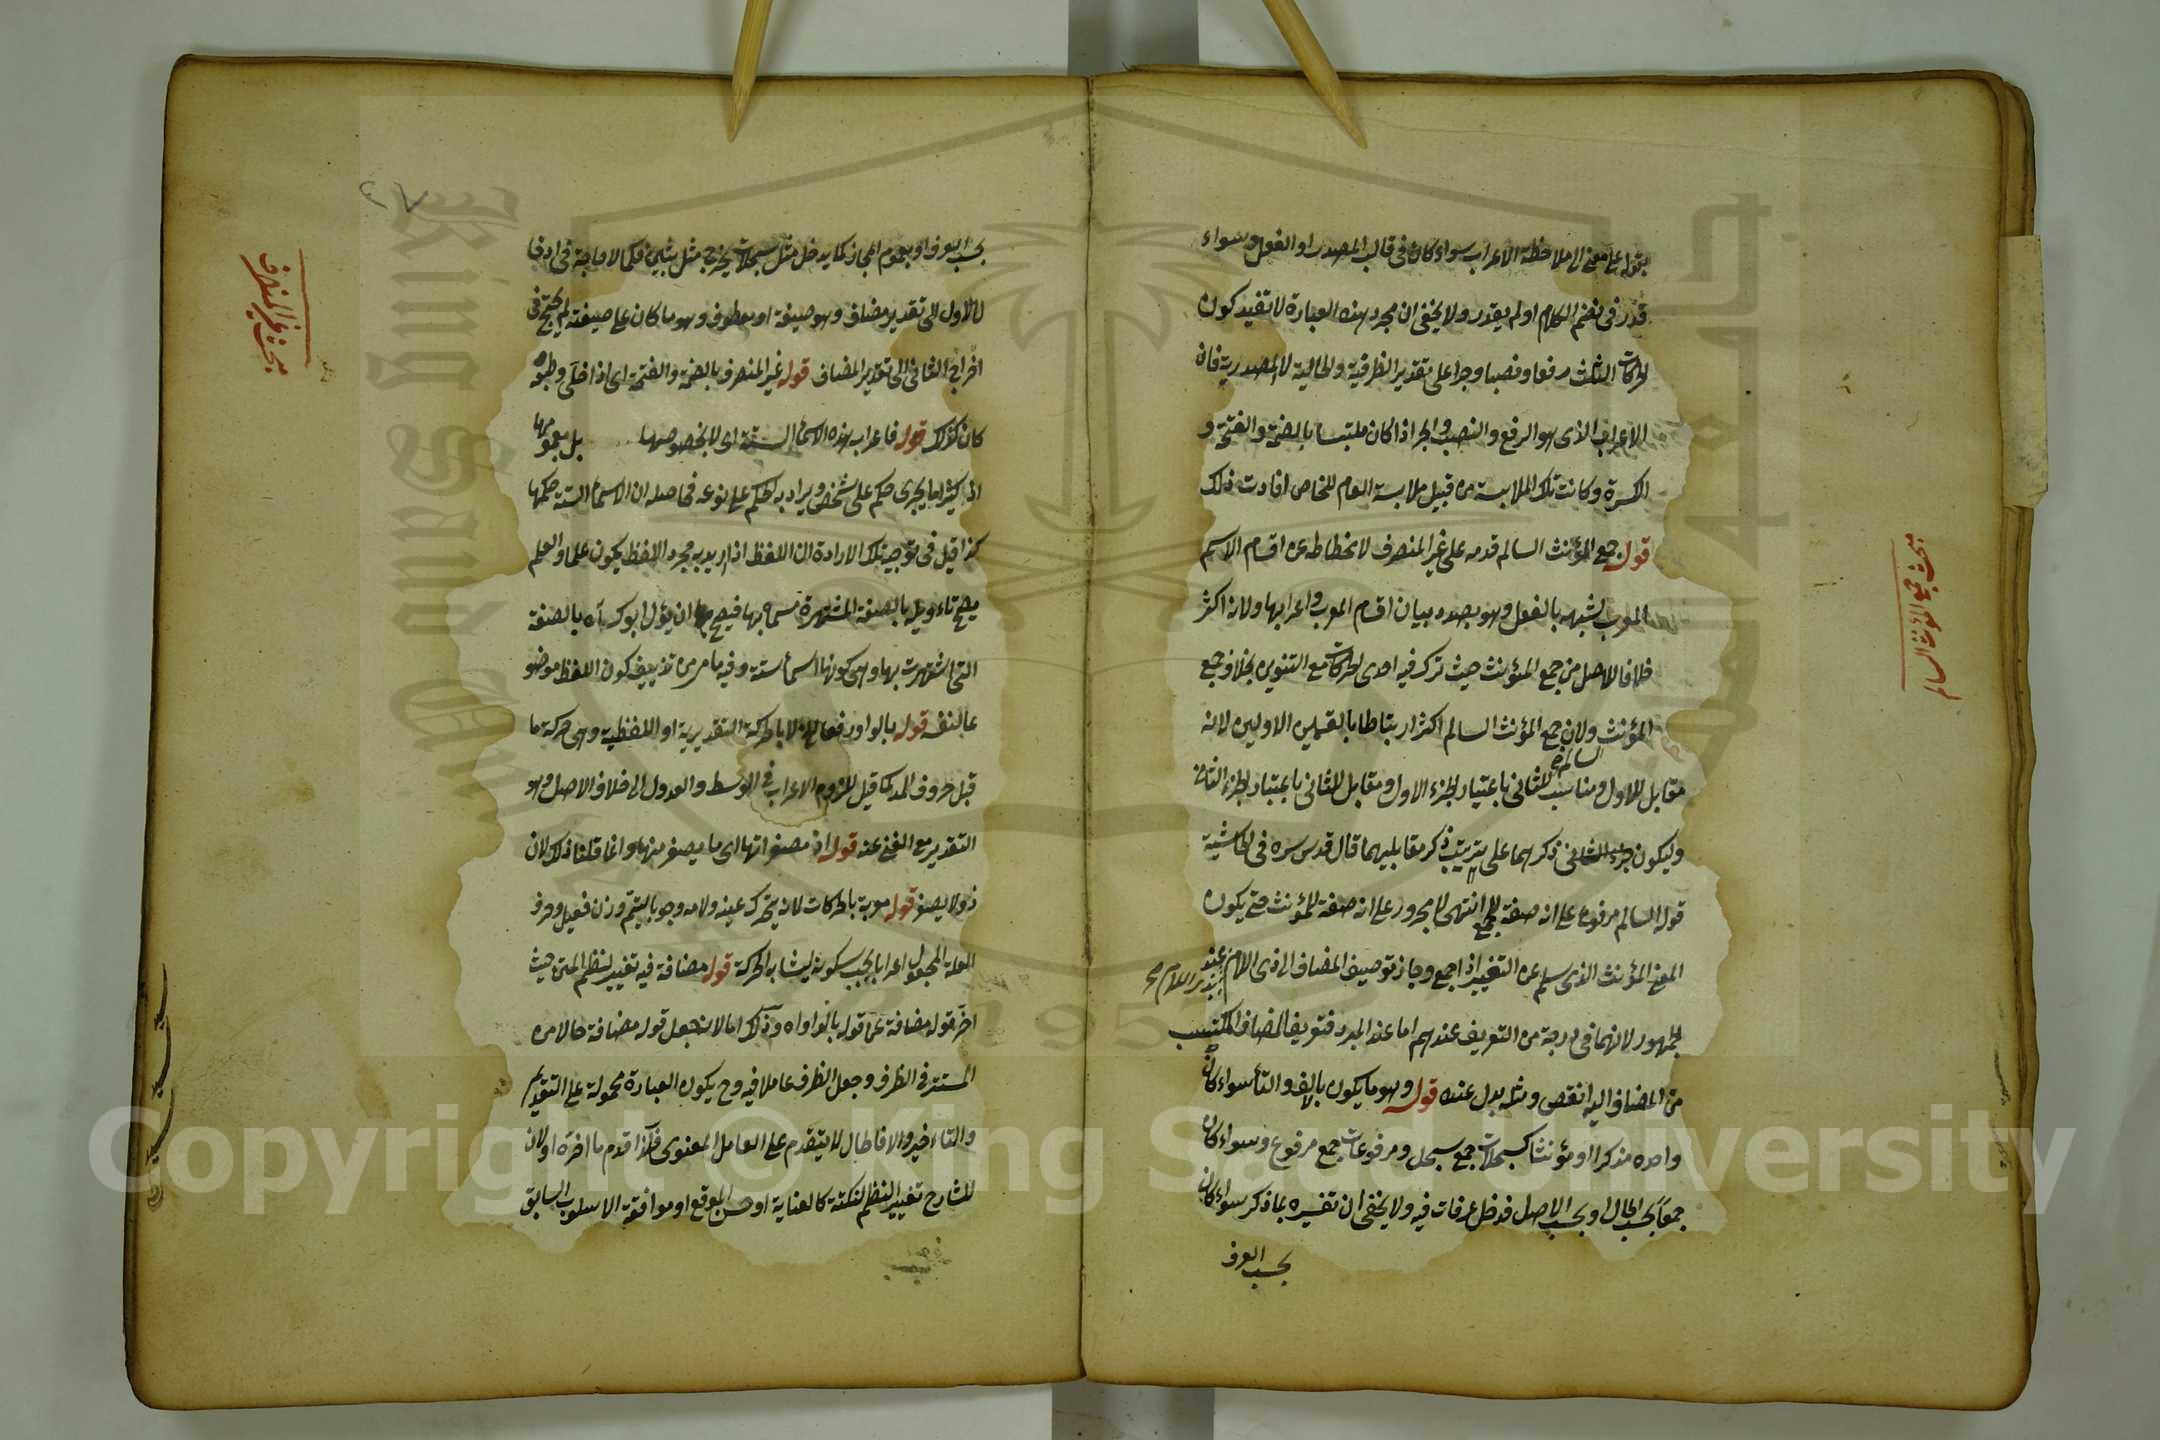 بقوله على معنى ان ملاحظة الاعراب سواء كان فى قالب المصدر او الفعل وسواء
قدر فى نظم الكلام او لم يقدر ولا يخفى ان مجرد هذه العبارة لا تفيد كون
الحركات الثلث رفعا ونصبا وجرا على تقدير الظرفية والحالية لا المصدرية فان
الاعراب الذى هو الرفع والنصب والجر اذا كان ملتبسا بالضمة والفتحة و
الكسرة وكانت تلك الملابسة من قبيل ملابسة العام للخاص افادت ذلك
قوله جمع المؤنث السالم قدمه على غير المنصرف لانحطاطه عن اقسام الاسم
المعرب لشبهه بالفعل وهو بصدد بيان اقسام المعرب واعرابها ولانه اكثر
خلافا للاصل من جمع المؤنث حيث ترك فيه احدى الحركات مع التنوين بخلاف جمع
المؤنث ولان جمع المؤنث السالم اكثر ارتباطا بالقسمين الاولين لانه
السالم
مقابل للاول ومناسب للثانى باعتبار الجزء الاول ومقابل للثانى باعتبار الجزء الثانى
وليكون ذكرهما على ترتيب ذكر مقابليهما قال قدس سره فى الحاشية
قوله السالم مرفوع على انه صفة للجمع انتهى لا مجرور على انه صفة للمؤنث حتى يكون
المعنى المؤنث الذى سلم عن التغيير اذا جمع وجاز توصيف المضاف الى ذى اللام عند
الجمهور لانهما فى درجة من التعريف عندهم اما عند المبرد فتعريف المضاف المكتسب
من المضاف اليه انقص ومثله بدل عنده قوله وهو ما يكون بالالف والتاء سواء كان
واحده مذكرا او مؤنثا كسجلات جمع سجل ومرفوعات جمع مرفوع وسواء كان
جمعا بحسب الحال او بحسب الاصل فدخل عرفات فيه ولا يخفى ان تفسيره بما ذكر سواء كان
بحسب العرف
مبحث جمع المؤنث السالم
٣٧
بحسب العرف او بعموم المجاز كما يدخل مثل سجلات يخرج مثل ثبين فكما لا حاجة فى ادخال
الاول الى تقدير مضاف وهو صيغة او معطوف وهو ما كان على صيغته لم يحتج فى
اخراج الثانى الى تقدير المضاف قوله غير المنصرف بالضمة والفتحة اى اذا خلى وطبعه
كان كذلك قوله فاعراب هذه الاسماء الستة اى لا بخصوصها بل بعمومها
اذ كثيرا ما يجرى حكم على شخص ويراد به الحكم على نوعه فحاصله ان الاسماء الستة حكمها
كذا قيل فى توجيه تلك الارادة ان اللفظ اذا اريد به مجرد اللفظ يكون علما والعلم
يصح تاءويله بالصفة المشتهرة مسماه بها فيصح ان يؤل ابوك آه بالصفة
التى اشتهرت بها وهى كونها اسماء ستة وفيه ما مر من تزييف كون اللفظ موضوعا
لنفسه قوله بالواو رفعا لا بالحركة التقديرية او اللفظية وهى حركة ما
قبل حروف المد كما قيل للزوم الاعراب فى الوسط والعدول الى خلاف الاصل وهو
التقدير مع الغنى عنه قوله اذ مصغراتها اى ما يصغر منها وانما قلنا ذلك لان
ذو لا يصغر قوله معربة بالحركات لانه يتحرك عينه ولامه وجوبا ليتم وزن فعيل وحرف
العلة المجعول اعرابا يجب سكونه ليشابه الحركة قوله مضافة فيه تغيير لنظم المتن حيث
اخر قوله مضافة عما قوله بالواو اه وذلك اما لانه جعل قوله مضافة حالا من
المستتر فى الظرف وجعل الظرف عاملا فيه وح يكون العبارة محمولة على التقديم
والتاءخير والا فالحال لا يتقدم على العامل المعنوى فلذا قدم ما اخره او لان
للشارح تغيير النظم لنكتة كالعناية او حسن الموقع او موافقة الاسلوب السابق
مبحث غير المنصرف
Copyright © King Saud University